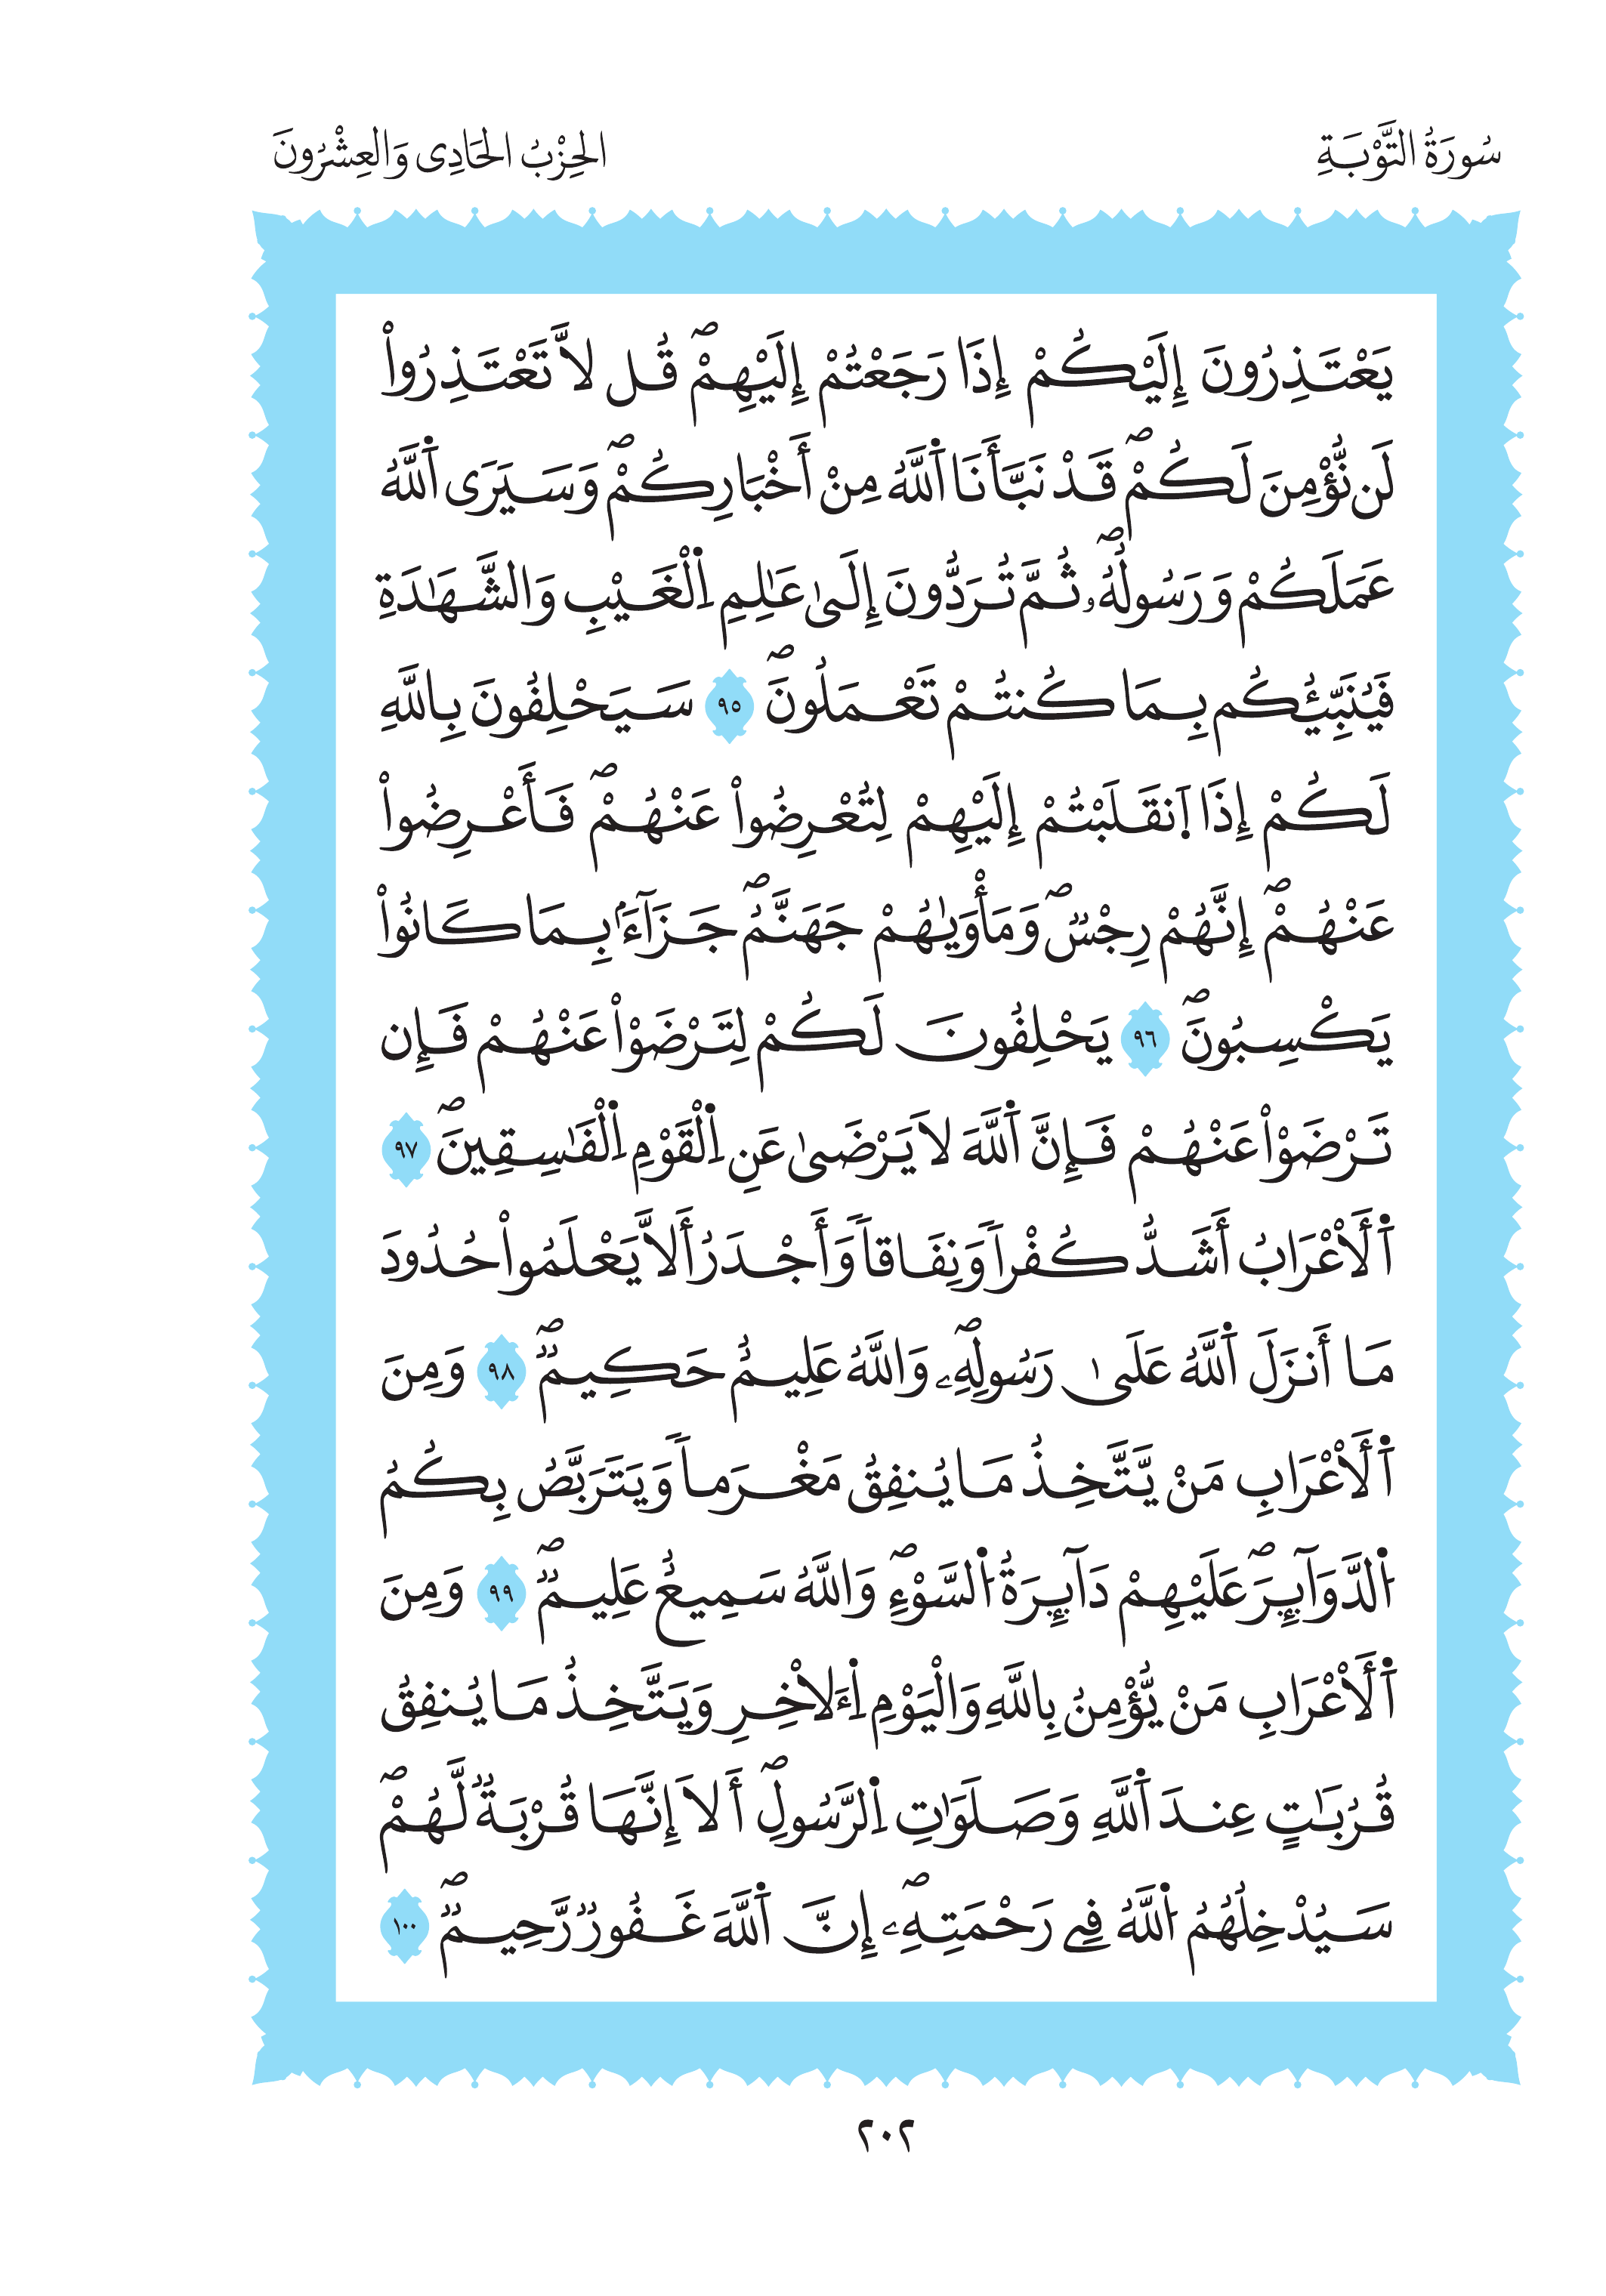 سُورَةُ التَّوْبَةِ
الحِزْبُ الحَادِى وَالعِشْرُونَ
يَعْتَذِرُونَ إِلَيْكُمْ إِذَا رَجَعْتُمْ إِلَيْهِمْۖ قُل لَّا تَعْتَذِرُواْ
لَن نُّؤْمِنَ لَكُمْۖ قَدْ نَبَّأَنَا اَ۬للَّهُ مِنْ أَخْبَارِكُمْۖ وَسَيَرَى اَ۬للَّهُ
عَمَلَكُمْ وَرَسُولُهُۥۖ ثُمَّ تُرَدُّونَ إِلَىٰ عَٰلِمِ اِ۬لْغَيْبِ وَالشَّهَٰدَةِ
فَيُنَبِّئُكُم بِمَا كُنتُمْ تَعْمَلُونَۖ ٩٥ سَيَحْلِفُونَ بِاللَّهِ
لَكُمْ إِذَا اَ۪نقَلَبْتُمْ إِلَيْهِمْ لِتُعْرِضُواْ عَنْهُمْۖ فَأَعْرِضُواْ
عَنْهُمْۖ إِنَّهُمْ رِجْسٌۖ وَمَأْوَيٰهُمْ جَهَنَّمُۖ جَزَآءَۢ بِمَا كَانُواْ
يَكْسِبُونَۖ ٩٦ يَحْلِفُونَ لَكُمْ لِتَرْضَوْاْ عَنْهُمْ فَإِن
تَرْضَوْاْ عَنْهُمْ فَإِنَّ اَ۬للَّهَ لَا يَرْضَىٰ عَنِ اِ۬لْقَوْمِ اِ۬لْفَٰسِقِينَۖ ٩٧
اَ۬لَاعْرَابُ أَشَدُّ كُفْراٗ وَنِفَاقاٗ وَأَجْدَرُ أَلَّا يَعْلَمُواْ حُدُودَ
مَا أَنزَلَ اَ۬للَّهُ عَلَىٰ رَسُولِهِۦۖ وَاللَّهُ عَلِيمٌ حَكِيمٞۖ ٩٨ وَمِنَ
اَ۬لَاعْرَابِ مَنْ يَّتَّخِذُ مَا يُنفِقُ مَغْرَماٗ وَيَتَرَبَّصُ بِكُمُ
اُ۬لدَّوَآئِرَۖ عَلَيْهِمْ دَآئِرَةُ اُ۬لسَّوْءِۖ وَاللَّهُ سَمِيعٌ عَلِيمٞۖ ٩٩ وَمِنَ
اَ۬لَاعْرَابِ مَنْ يُّؤْمِنُ بِاللَّهِ وَالْيَوْمِ اِ۬ءَلَاخِرِ وَيَتَّخِذُ مَا يُنفِقُ
قُرُبَٰتٍ عِندَ اَ۬للَّهِ وَصَلَوَٰتِ اِ۬لرَّسُولِۖ أَلَا إِنَّهَا قُرْبَةٞ لَّهُمْۖ
سَيُدْخِلُهُمُ اُ۬للَّهُ فِے رَحْمَتِهِۦۖ إِنَّ اَ۬للَّهَ غَفُورٞ رَّحِيمٞۖ ١٠٠
٢٠٢